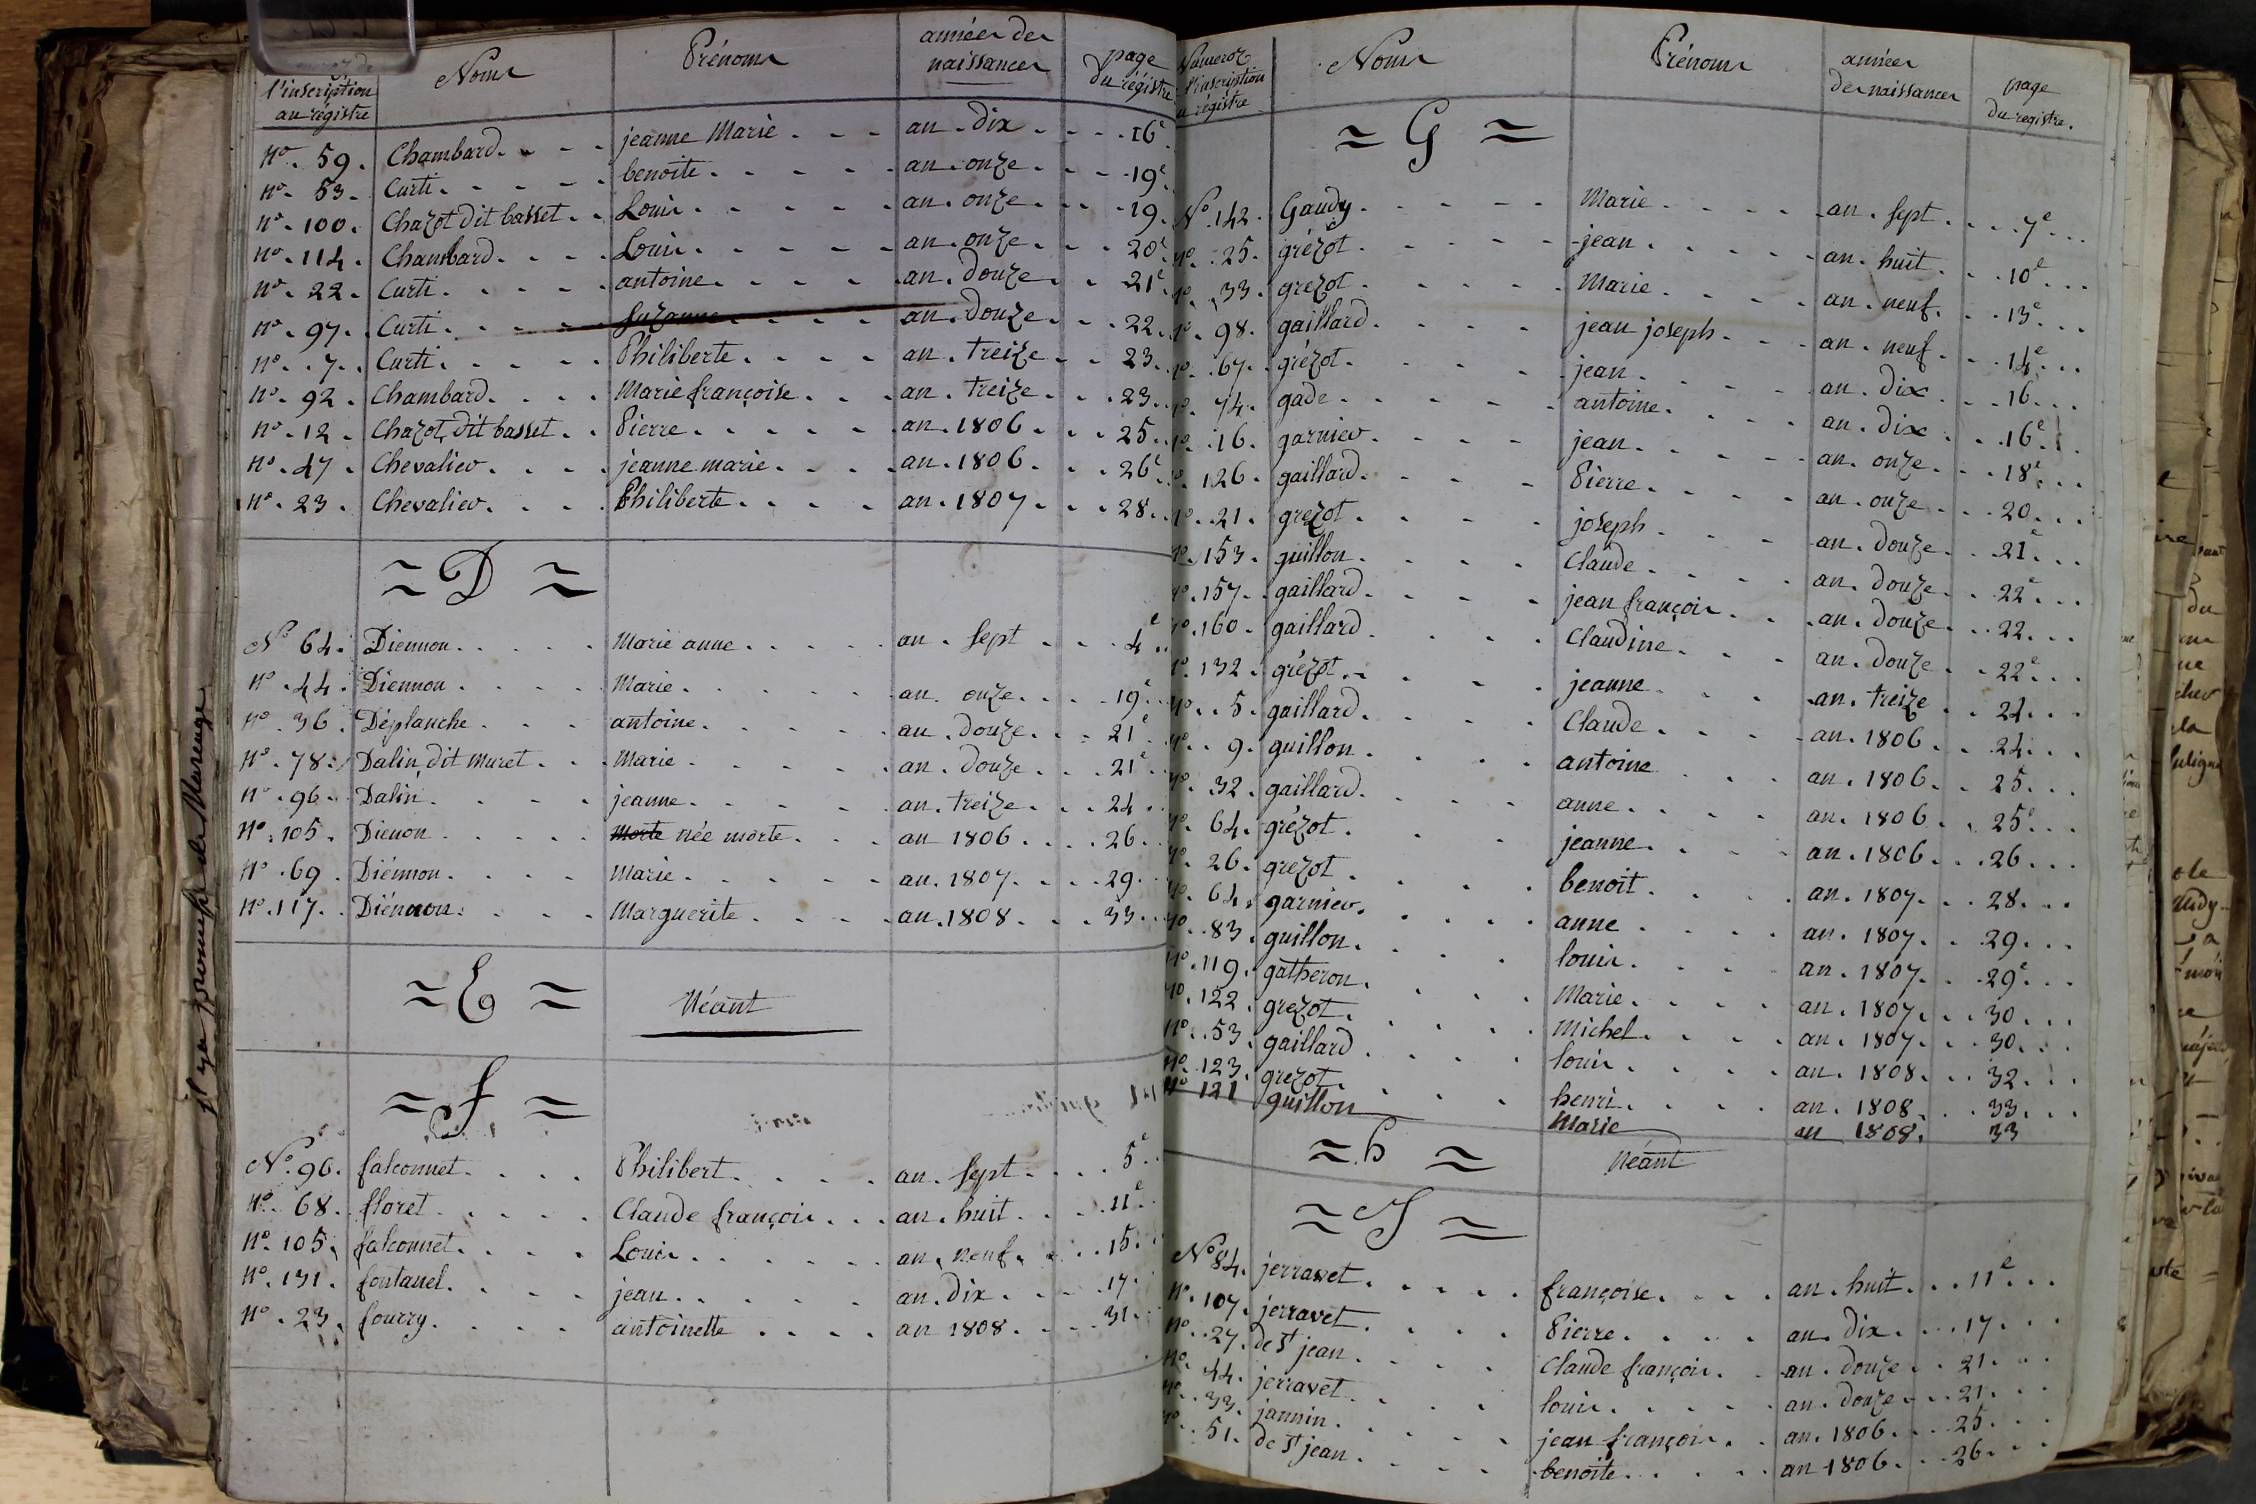 l'inscription au régistre | Noms | Prénoms | années des naissances | page du régistre
n.º 59. Chambard. jeanne Marie. an. dix. 16e
n.º 53. Curti. benoite. an. onze. 19e
n.º 100. Chazot dit basset. Louis. an. onze. 19.
n.º 114. Chambard. Louis. an. onze. 20e
n.º 22. Curti. antoine. an. douze. 21e
n.º 97. Curti. Suzanne. an. douze. 22.
n.º 7. Curti. Philiberte. an. treize. 23.
n.º 92. Chambard. Marie françoise. an. treize. 23.
n.º 12. Chazot, dit basset. Pierre. an. 1806. 25.
n.º 47. Chevalier. jeanne marie. an. 1806. 26e
n.º 23. Chevalier. Philiberte. an. 1807. 28.
= D =
N.º 64. Diennon. Marie anne. an. sept. 4e
n.º 44. Diennon. Marie. an. onze. 19e
n.º 36. Déplanche. antoine. an. douze. 21
n.º 78. Dalin, dit muret. Marie. an. douze. 21e
n.º 96. Dalin. jeanne. an. treize. 24
n.º 105. Dienon. morte née morte. an 1806. 26.
n.º 69. Diénnon. Marie. an. 1807. 29.
n.º 117. Diénnon. Marguerite. an. 1808. 33.
= E = Néant
= f =
N.º 96. falconnet. Philibert. an. sept. 5e
n.º 68. floret. Claude françois. an. huit. 11e
n.º 105. falconnet. Louis. an. neuf. 15.
n.º 131. fontanel. jean. an. dix. 17.
n.º 23. fourry. antoinette. an 1808. 31.
Numéroz l'inscription au régistre | Noms | Prénoms | années des naissances | page du registre.
= G =
N.º 142. Gaudy. Marie. an. sept. 7e
n.º 25. grézot. jean. an. huit. 10e
n.º 33. grezot. Marie. an. neuf. 13e
n.º 98. gaillard. jean joseph. an. neuf. 14e
n.º 67. grézot. jean. an. dix. 16.
n.º 74. gade. antoine. an. dix. 16e
n.º 16. garnier. jean. an. onze. 18e
n.º 126. gaillard. Pierre. an. onze. 20.
n.º 21. grezot. joseph. an. douze. 21e
n.º 153. guillon. Claude. an. douze. 22e
n.º 157. gaillard. jean françois. an. douze. 22.
n.º 160. gaillard. Claudine. an. douze. 22e
n.º 132. grézot. jeanne. an. treize. 24.
n.º 5. gaillard. Claude. an. 1806. 24.
n.º 9. guillon. antoine. an. 1806. 25.
n.º 32. gaillard. anne. an. 1806. 25e
n.º 64. grézot. jeanne. an. 1806. 26.
n.º 26. grezot. benoit. an. 1807. 28.
n.º 64. garnier. anne. an. 1807. 29.
n.º 83. guillon. louis. an. 1807. 29e
n.º 119. gatheron. Marie. an. 1807. 30.
n.º 122. grezot. Michel. an. 1807. 30.
n.º 53. gaillard. louis. an. 1808. 32.
n.º 123. grezot. henri. an. 1808. 33.
n.º 121 guillon Marie an 1808. 33
= h = Néant
= J =
N.º 84. jerravet. françoise. an. huit. 11e
n.º 107. jerravet. Pierre. an. dix. 17.
n.º 27. de St jean. Claude françois. an. douze. 21.
n.º 44. jerravet. louis. an. douze. 21.
n.º 33. jannin. jean françois. an. 1806. 25.
n.º 51. de St jean. benoite. an 1806. 26.